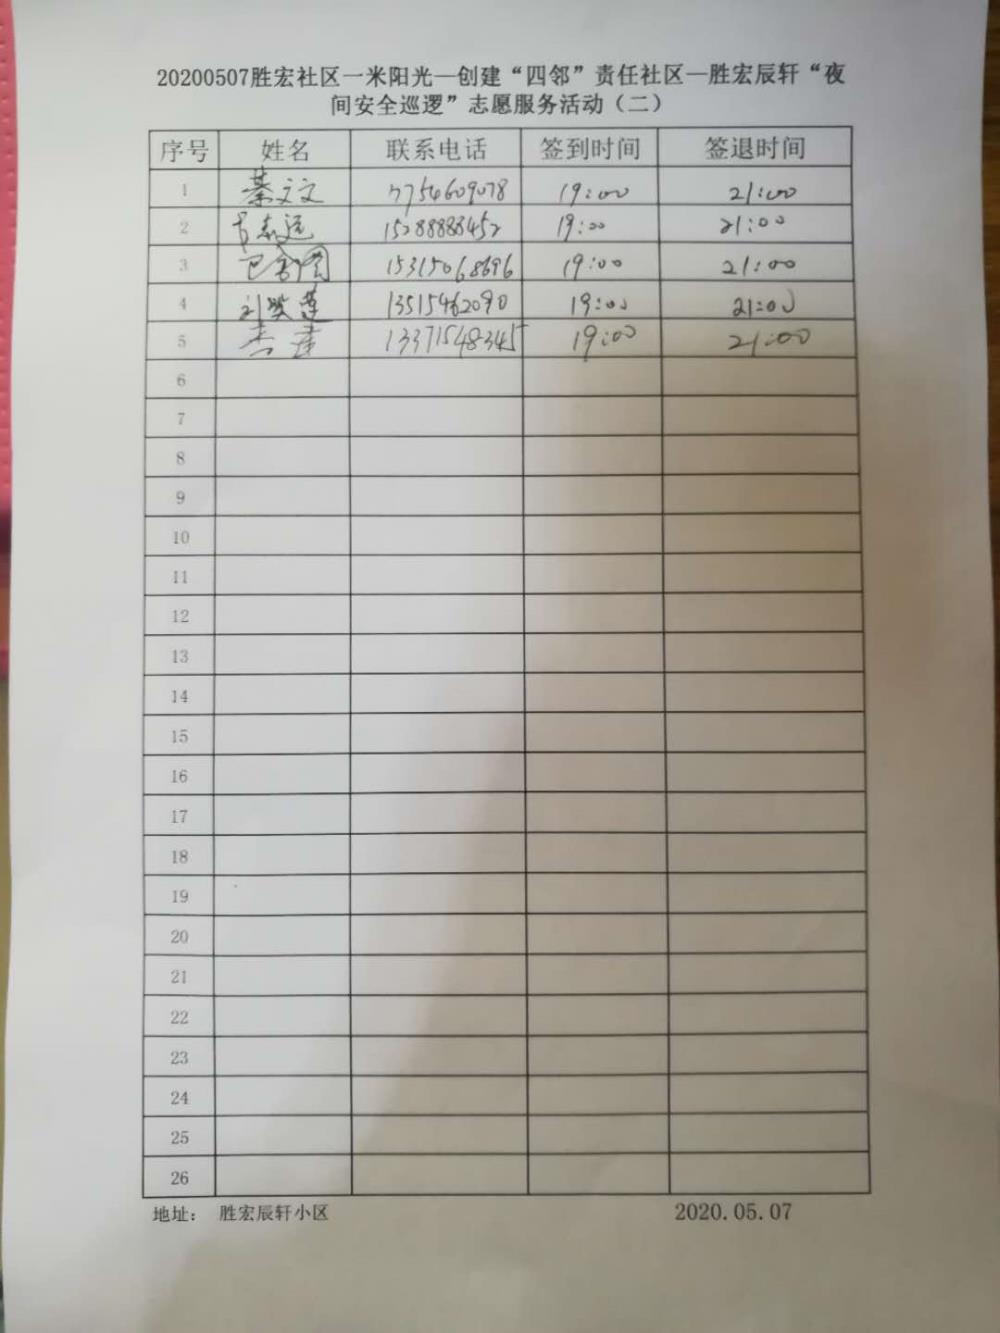 20200507胜宏社区一米阳光—创建“四邻”责任社区—胜宏辰轩“夜
间安全巡逻”志愿服务活动（二）
序号 姓名 联系电话 签到时间 签退时间
1 綦文文 19:00 21:00
2 15288888452 19:00 21:00
3 15315068696 19:00 21:00
4 13515462090 19:00 21:00
5 13371548345 19:00 21:00
6
7
8
9
10
11
12
13
14
15
16
17
18
19
20
21
22
23
24
25
26
地址： 胜宏辰轩小区 2020.05.07